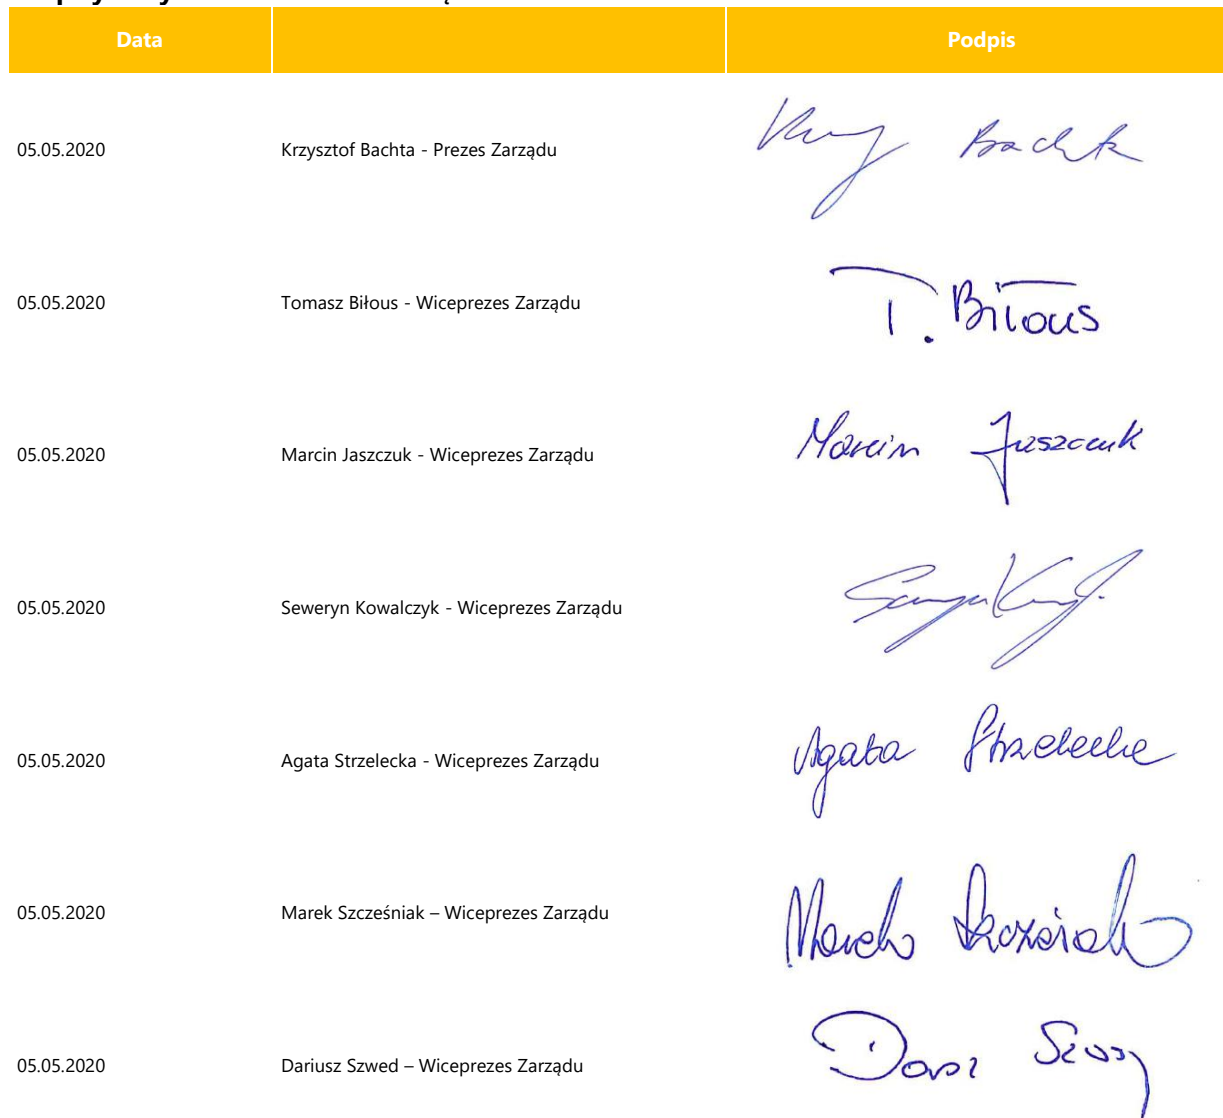 Data Podpis
05.05.2020 Krzysztof Bachta - Prezes Zarządu Bachta
05.05.2020 Tomasz Biłous - Wiceprezes Zarządu T. Biłous
05.05.2020 Marcin Jaszczuk - Wiceprezes Zarządu Marcin Jaszczuk
05.05.2020 Seweryn Kowalczyk - Wiceprezes Zarządu
05.05.2020 Agata Strzelecka - Wiceprezes Zarządu Agata Strzelecka
05.05.2020 Marek Szcześniak – Wiceprezes Zarządu Marek
05.05.2020 Dariusz Szwed – Wiceprezes Zarządu